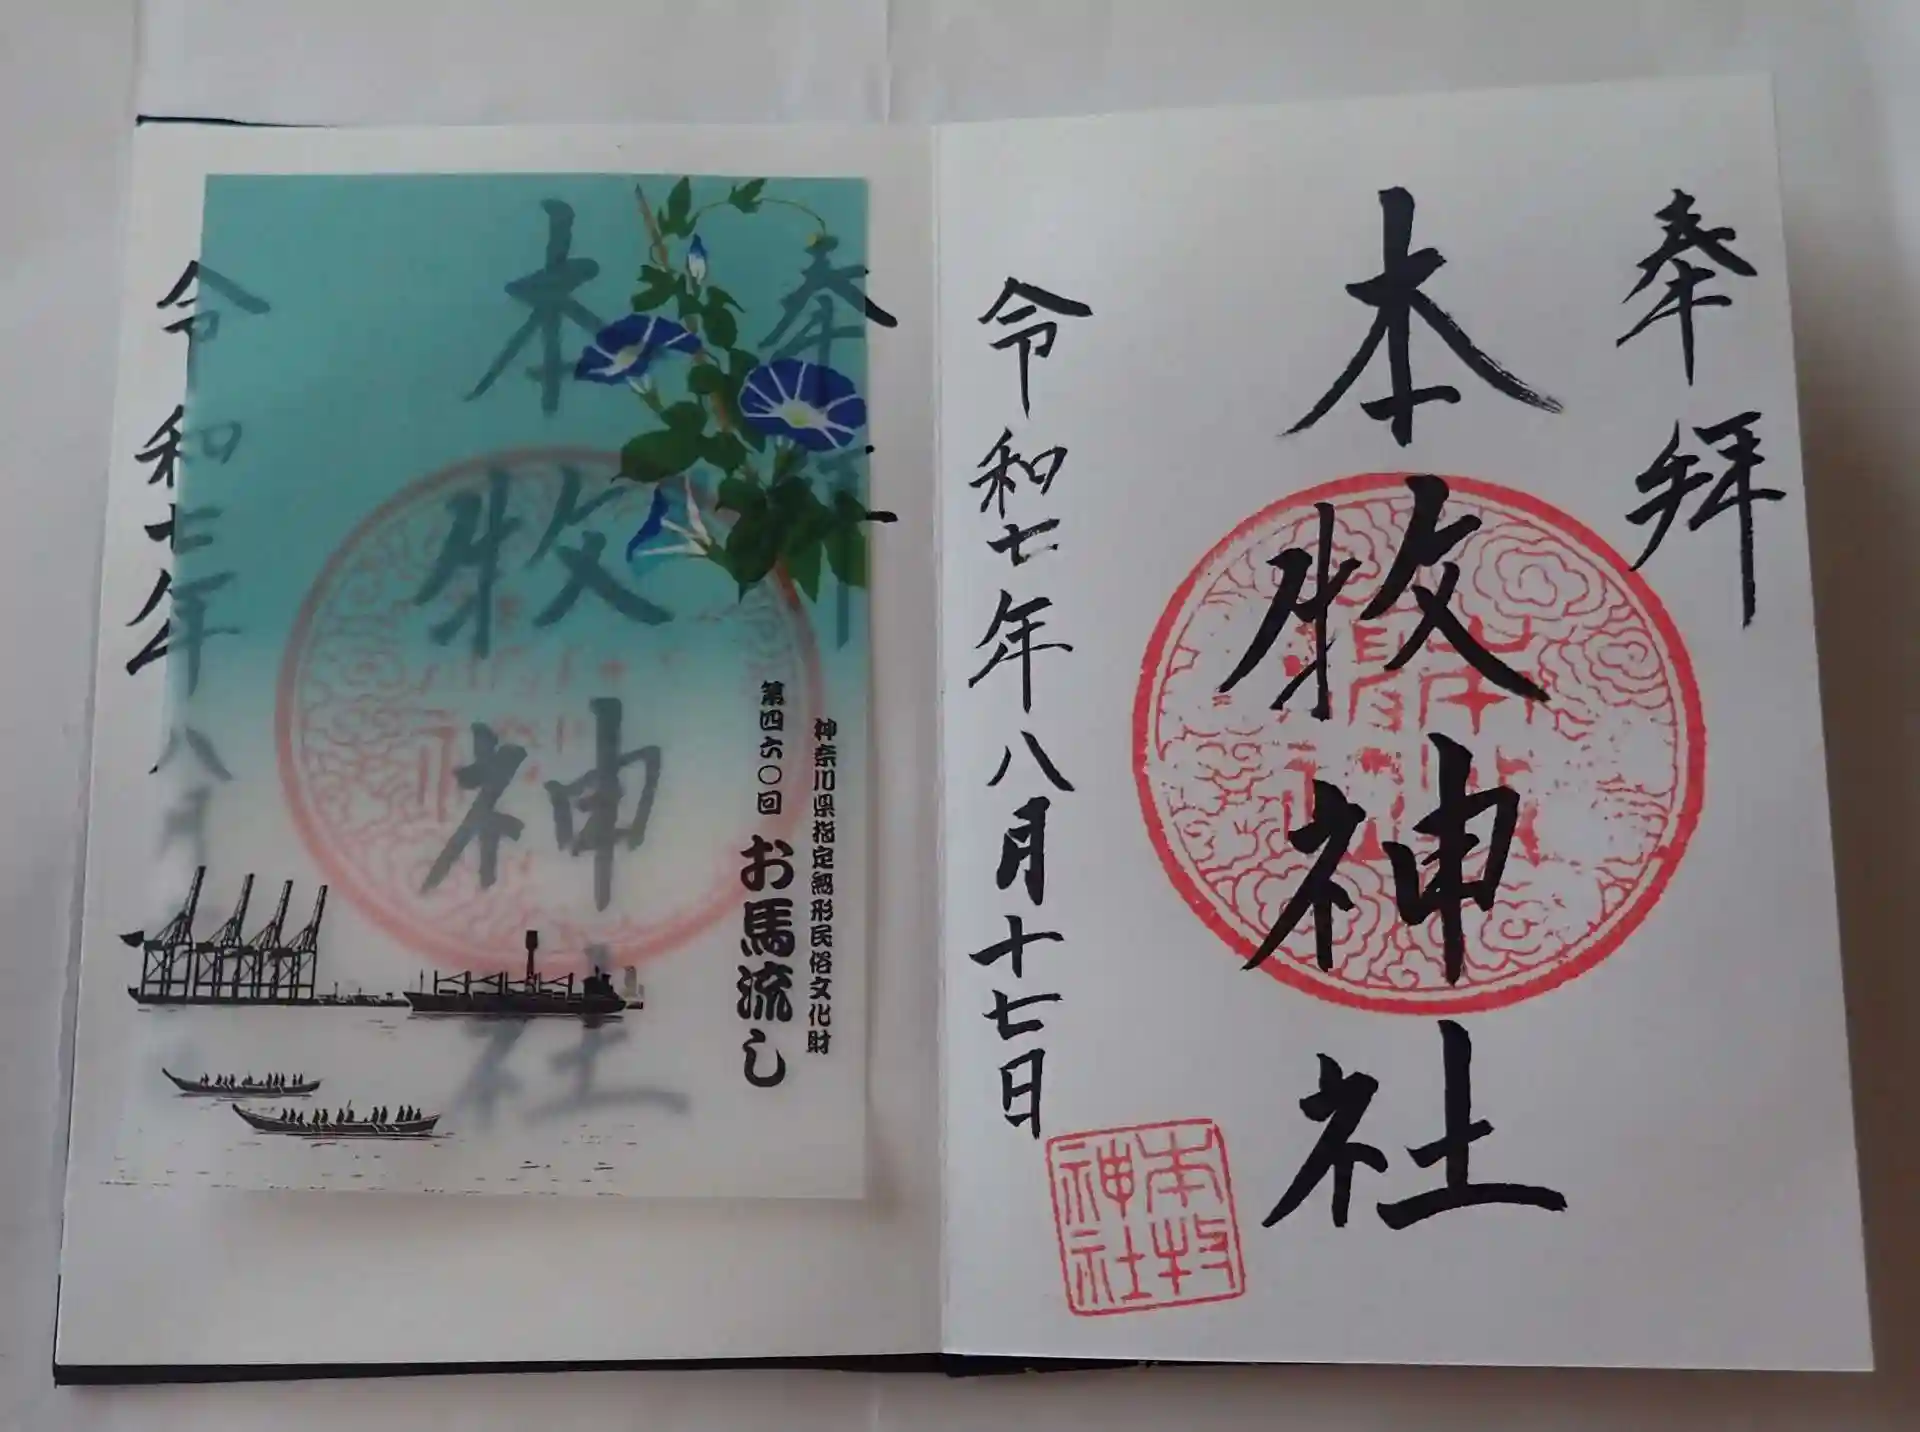 奉拝
本牧神社
令和七年八月十七日
本牧
神社
奉
本牧神社
神奈川県指定無形民俗文化財
第四六〇回 お馬流し
令和七年八月